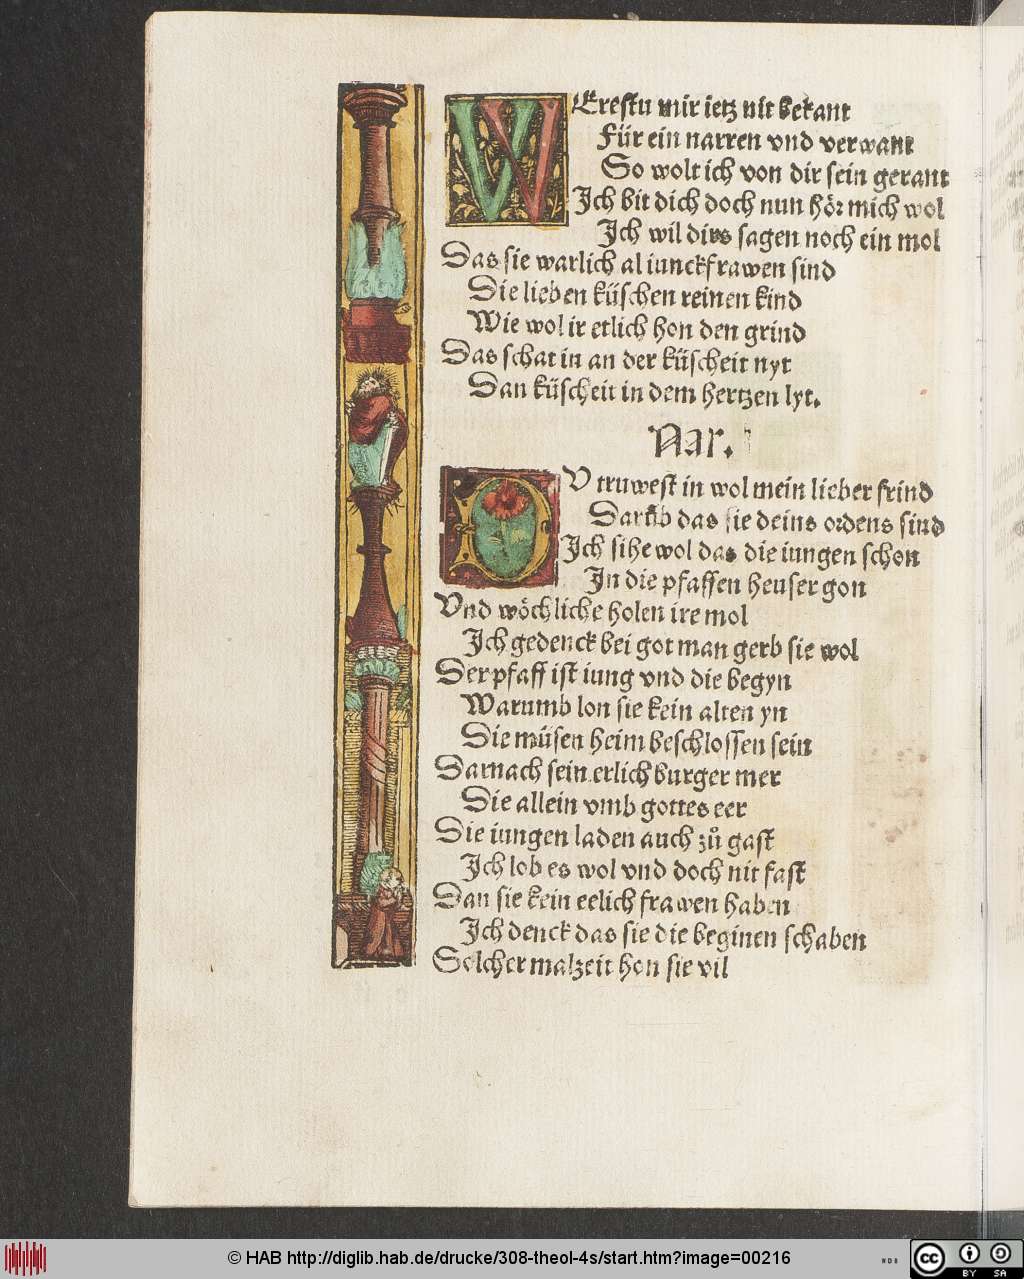 WErestu mir ietz nit bekant
Für ein narren vnd verwant
So wolt ich von dir sein gerant
Ich bit dich doch nun hör mich wol
Ich wil dirs sagen noch ein mol
Das sie warlich al iunckfrawen sind
Die lieben küschen reinen kind
Wie wol ir etlich hon den grind
Das schat in an der küscheit nyt
Dan küscheit in dem hertzen lyt.
Nar.
DV truwest in wol mein lieber frind
Darūb das sie deins ordens sind
Ich sihe wol das die iungen schon
In die pfaffen heuser gon
Vnd wöchliche holen ire mol
Ich gedenck bei got man gerb sie wol
Der pfaff ist iung vnd die begyn
Warumb lon sie kein alten yn
Die müsen heim beschlossen sein
Darnach sein erlich burger mer
Die allein vmb gottes eer
Die iungen laden auch zů gast
Ich lob es wol vnd doch nit fast
Dan sie kein eelich frawen haben
Ich denck das sie die beginen schaben
Solcher malzeit hon sie vil
© HAB http://diglib.hab.de/drucke/308-theol-4s/start.htm?image=00216
WDB
cc BY SA